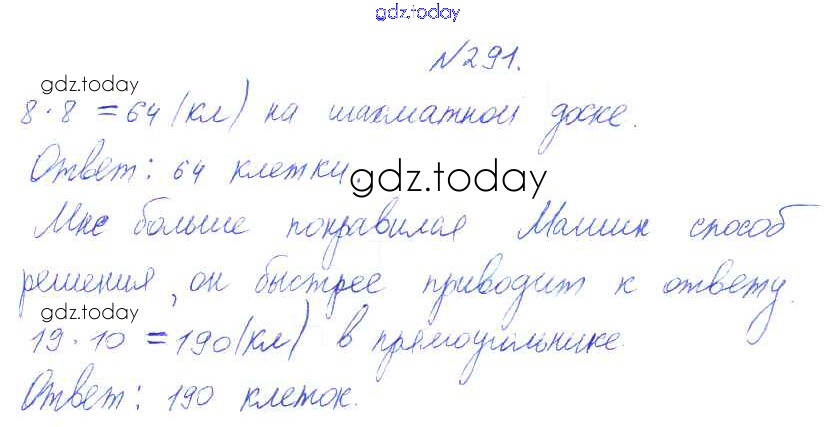 gdz.today
№291.
gdz.today
8·8=64(кл) на шахматной доске.
Ответ: 64 клетки.
gdz.today
Мне больше понравился Машин способ
решения, он быстрее приводит к ответу.
gdz.today
19·10=190(кл) в прямоугольнике.
Ответ: 190 клеток.